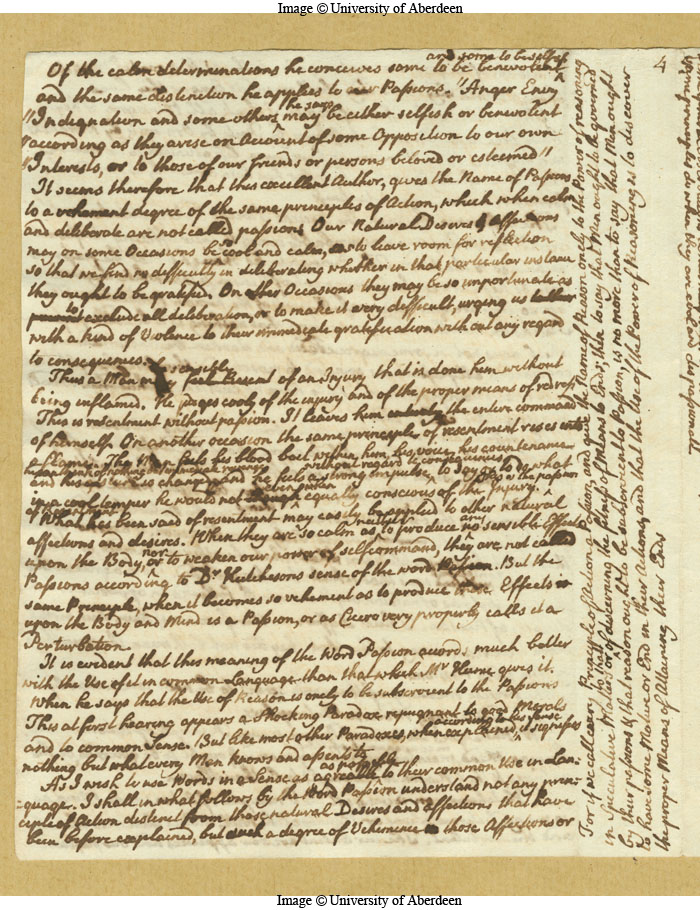 Image © University of Aberdeen
4
Of the calm determinations he conceives some to be benevolent and some to be selfish
and the same distinction he applies to our Passions. "Anger Envy
"Indegnation and some others, he says may be either selfish or benevolent
"according as they arese on Account of some Opposition to our own
"Interests, or to those of our friends or persons beloved or esteemed"
It seems therefore that this excellent Author, gives the Name of Passions
to a vehement degree of the same principles of Action, which when calm
and deliberate are not called passions. Our Natural Desires & affections
may on some Occasions be so cool and calm, as to leave room for reflection
so that we find no difficulty in deliberating whether in that particular instance
they ought to be gratified. On other Occasions they may be so importunate as
to exclude all deliberation, or to make it very difficult, urging us
with a kind of Violence to their immediate gratification without any regard
to consequences.
Thus a Man may be sensibly of an Injury that is done him without
being inflamed. He judges cooly of the injury and of the proper means of redress
This is resentment without passion. It leaves him the entire command
of himself. On another occasion the same principle of resentment rises
flame. his blood boil within him, his voice, his countenance
and his so changed and he feels a strong impulse without regard to consequences to do what
in a cool temper he would not equally conscious of the Injury.
What has been said of resentment may easily be applied to other natural
affections and desires. When they are so calm as neither to produce any sensible Effects
upon the Body, nor to weaken our power of selfcommand, they are not called
Passions according to Dr Hutchesons sense of the word Passion. But the
same Principle, when it becomes so vehement as to produce these Effects
upon the Body and Mind is a Passion, or as Cicero very properly calls it a
Perturbation.
It is evident that this meaning of the Word Passion accords much better
with the Use of it in common Language than that which Mr Hume gives it.
When he says that the Use of Reason is onely to be subservient to the Passions
This at first hearing appears a shocking Paradox repugnant to good Morals
and to common Sense. But like most other Paradoxes, when explained, according to his sense it signifies
nothing but what every Man knows and assents to.
As I wish to use Words in a Sense as agreable as possible to their common Use in Lan-
guage. I shall in what follows by the Word Passion understand not any prin-
ciple of Action distinct from those natural Desires and affections that have
been before explained, but such a degree of Vehemence in those Affections or
For if we call every Principle of Action a Passion, and give the Name of Reason onely to the Power of reasoning
in speculative Matters or of discerning the fitness of Means to Ends; then to say that Men ought to be governed
by their passions & that reason ought to be subservient to Passion, is no more than to say that Men ought
to have some Motive or End in their Actions, and that the Use of the Power of Reasoning is to discover
the proper Means of Attaining their Ends
Image © University of Aberdeen